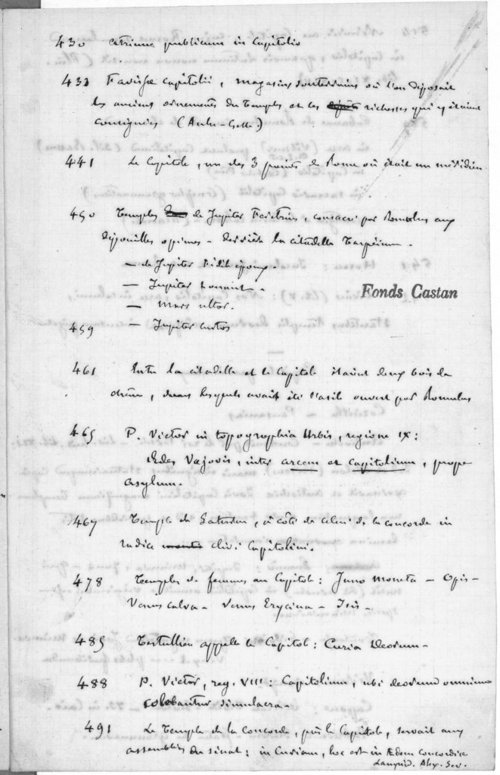 430 atrium publicum in Capitolio
433 Favissae Capitolii, magasins souterrains où l'on déposait
les anciens ornements du Temple et les richesses qui y étaient
consignées (Aulu-Gelle)
441 Le Capitole, un des 3 points de Rome où était un
450 Temples de Jupiter Feretrius, consacré par Romulus aux
dépouilles opimes - derrière la citadelle Tarpéienne.
— de Jupiter
— Jupiter tonnant -
— Mars ultor.
Fonds Castan
459 — Jupiter custos
461 Entre la citadelle et le Capitole étaient deux bois de
chêne, dans lesquels avait été l'asile ouvert par Romulus
465 P. Victor in topographia Urbis, regione IX :
Ædes Vejovis, inter arcem et capitolium, prope
asylum.
467 Temple de Saturne, à côté de celui de la concorde in
radice clivi Capitolini.
478 Temples de femmes au Capitole : Juno Moneta — Opis -
Venus calva - Venus Erycina - Isis -
485 Tertullien appelle le Capitole : Curia Deorum -
488 P. Victor, reg. VIII : Capitolium, ubi deorum omnium
celebantur simulacra -
491 Le Temple de la Concorde, près le Capitole, servait aux
assemblées du sénat : in Curiam, hoc est in Ædem Concordiæ
Lamprid. Alex. Sev.